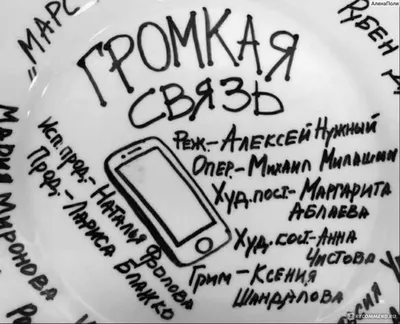 АленаПоли
ГРОМКАЯ
СВЯЗЬ
„МАРС
РУБЕН
Реж.-АЛЕКСЕЙ НУЖНЫЙ
ОПЕР.-МИХАИЛ МИЛАШИН
ХУД.ПОСТ-МАРГАРИТА
АБЛАЕВА
ХУД.КОСТ-АННА
ЧИСТОВА
ГРИМ-КСЕНИЯ
ШАНДАЛОВА
ИСП.ПРОД.-НАТАЛЬЯ ФРОЛОВА
ПРОД.-ЛАРИСА БЛАЖКО
МАРИЯ МИРОНОВА
IRECOMMEND.RU